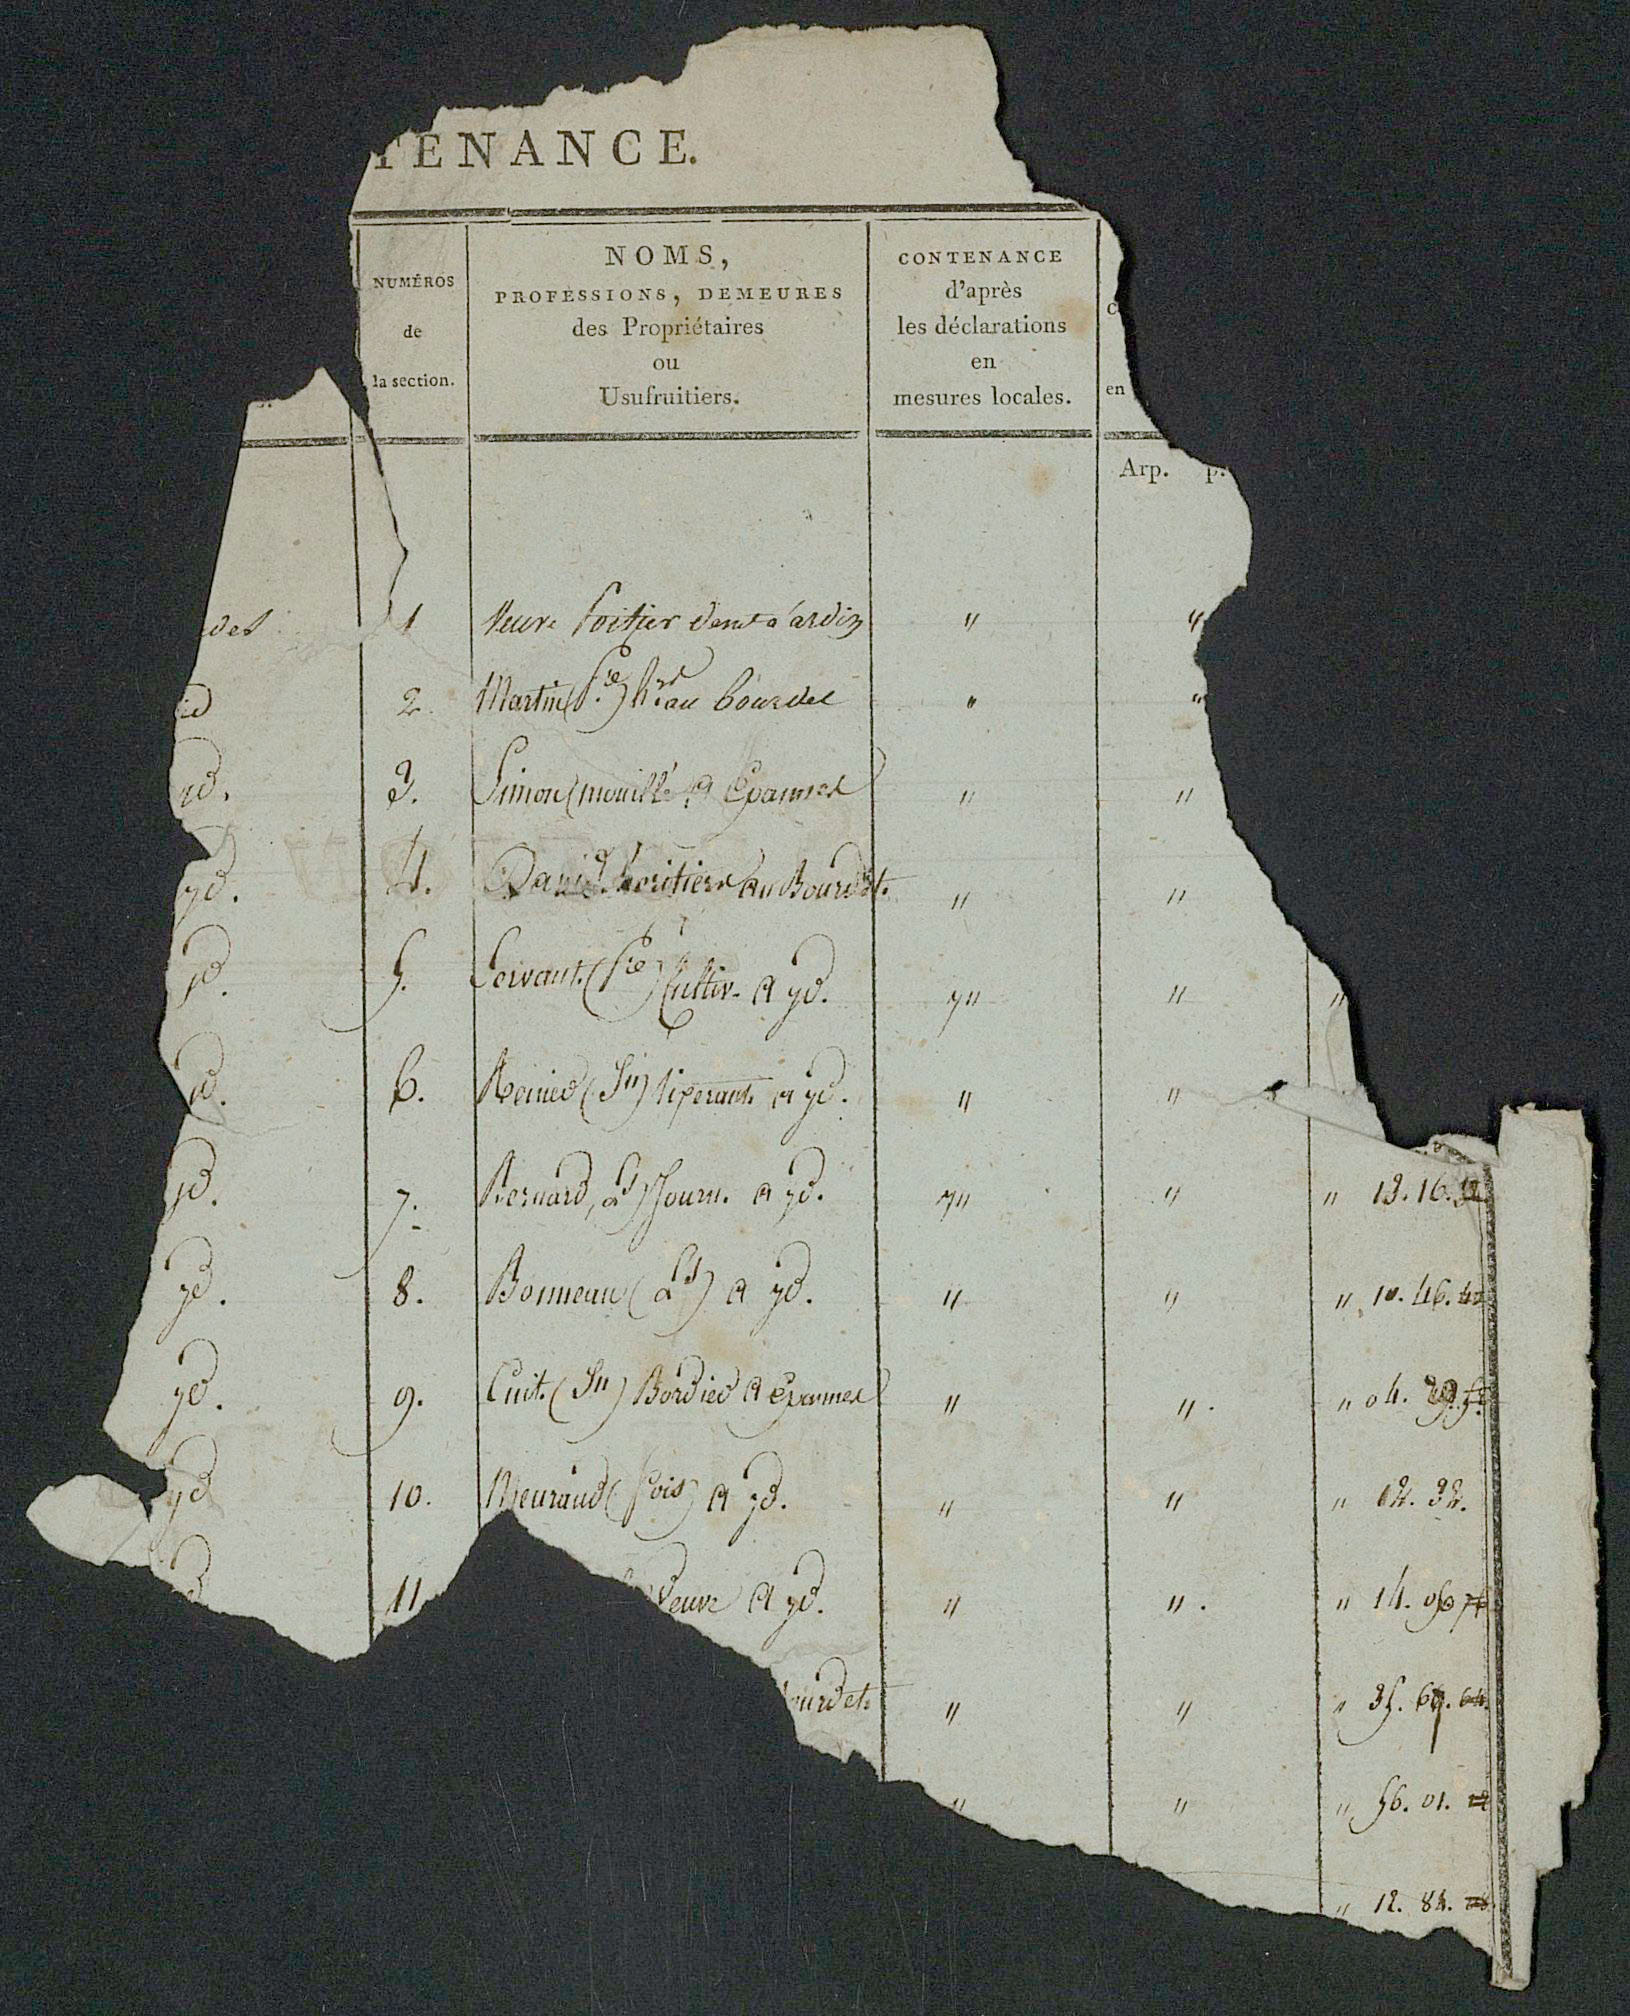 TENANCE.
NUMÉROS
de
la section.
NOMS,
PROFESSIONS, DEMEURES
des Propriétaires
ou
Usufruitiers.
CONTENANCE
d'après
les déclarations
en
mesures locales.
en
Arp. p.
1 Veuve Poitier demt a ardin " "
id 2. Martin (Pre) au bourdet " "
id. 3. Simon a Epannes " "
yd. 4. David heritiers au Bourdet. " "
yd. 5. Servant. (Pre) Cultiv. a yd. " " "
yd. 6. a yd. " "
yd. 7. Bernard, Journ. a yd. " " " 13. 16.
yd. 8. Bonneau a yd. " " " 10. 46.
yd. 9. Cuit. Bordier a Epannes " " " 04.
yd 10. (fois) a yd. " " " 12. 32.
11 Veuve a yd. " " " 14.
ourdet. " " " 35.
" " " 56. 01.
" 12. 84.